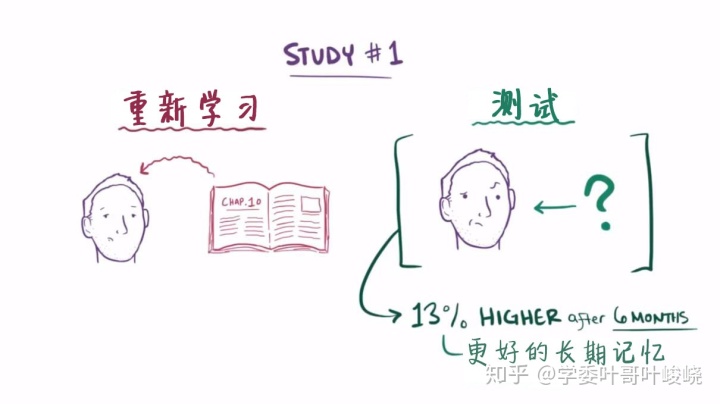 STUDY #1
重新学习
测试
CHAP.10
?
13% HIGHER after 6 MONTHS
更好的长期记忆
知乎 @学委叶哥叶峻峣